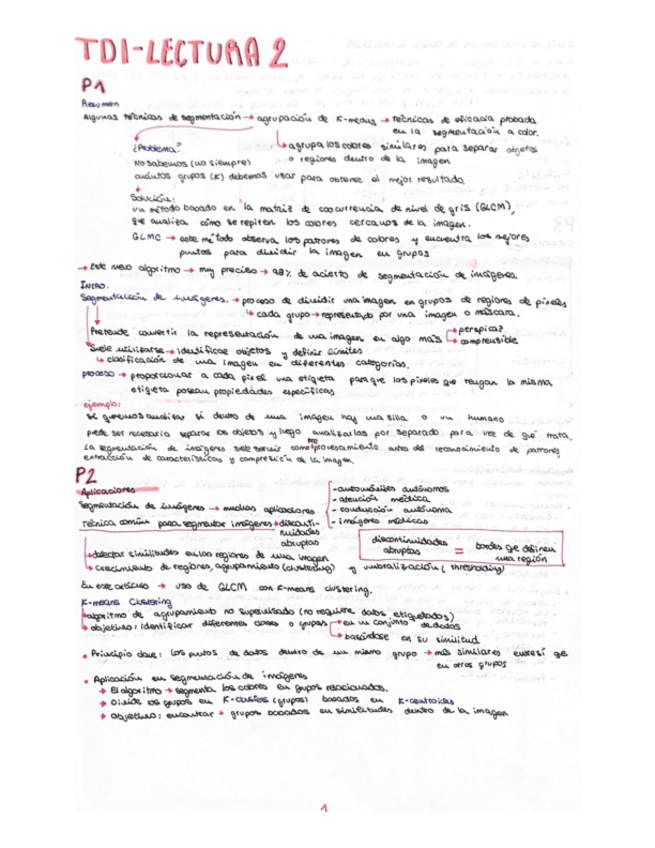 TDI-LECTURA 2
P1
Resumen
Algunas técnicas de segmentación → agrupación de K-means → técnicas de eficacia probada
en la segmentación a color.
¿Problema?
agrupa los colores similares para separar objetos
o regiones dentro de la imagen
No sabemos (no siempre)
cuántos grupos (K) debemos usar para obtener el mejor resultado
Solución:
un método basado en la matriz de coocurrencia de nivel de gris (GLCM),
que analiza cómo se repiten los colores cercanos de la imagen.
GLMC → este método observa los patrones de colores y encuentra los mejores
puntos para dividir la imagen en grupos
→ Este algoritmo → muy preciso → 98% de acierto de segmentación de imágenes.
INTRO.
Segmentación de imágenes. → proceso de dividir una imagen en grupos de regiones de píxeles
↳ cada grupo → representado por una imagen o máscara.
Pretende convertir la representación de una imagen en algo más → perspicaz
↳ comprensible
Suele utilizarse → identificar objetos y definir límites
↳ clasificación de una imagen en diferentes categorías.
proceso → proporcionar a cada píxel una etiqueta para que los píxeles que tengan la misma
etiqueta posean propiedades específicas
ejemplo:
si queremos analizar si dentro de una imagen hay una silla o un humano
puede ser necesario separar los objetos y luego analizarlos por separado para ver de qué trata.
La segmentación de imágenes suele servir como preprocesamiento antes del reconocimiento de patrones
extracción de características y compresión de la imagen.
P2
Aplicaciones
Segmentación de imágenes → muchas aplicaciones
- automóviles autónomos
- atención médica
- conducción autónoma
- imágenes médicas
Técnica común para segmentar imágenes → disconti-
nuidades
abruptas
discontinuidades abruptas = bordes que definen una región
detectar similitudes en las regiones de una imagen
↳ crecimiento de regiones, agrupamiento (clustering) y umbralización (thresholding)
En este artículo → uso de GLCM con K-means clustering.
K-means Clustering
algoritmo de agrupamiento no supervisado (no requiere datos etiquetados)
objetivo: identificar diferentes clases o grupos → en un conjunto de datos
↳ basándose en su similitud
• Principio clave: los puntos de datos dentro de un mismo grupo → más similares entre sí que
en otros grupos
• Aplicación en segmentación de imágenes
→ El algoritmo → segmenta los colores en grupos relacionados.
→ Divide los grupos en K-clusters (grupos) basados en K-centroides
→ Objetivo: encontrar + grupos basados en similitudes dentro de la imagen
1